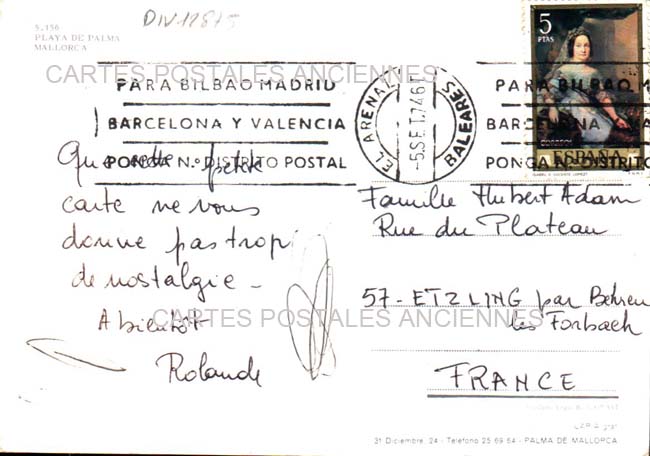 DIV12875
S. 156
PLAYA DE PALMA
MALLORCA
CARTES POSTALES ANCIENNES
PARA BILBAO MADRID
BARCELONA Y VALENCIA
PONGA N.º DISTRITO POSTAL
EL ARENAL
-5.SET.1746
BALEARES
PARA BILBAO, M
BARCELONA Y VA
PONGA N.º DISTRITO
5
PTAS
CORREOS
ESPAÑA
Que cette petite
carte ne vous
donne pas trop
de nostalgie -
A bientôt
Rolande
Famille Hubert Adam
Rue du Plateau
57- ETZLING par Behren
les Forbach
FRANCE
CARTES POSTALES ANCIENNES
31 Diciembre, 24 - Telefono 25 69 64 - PALMA DE MALLORCA